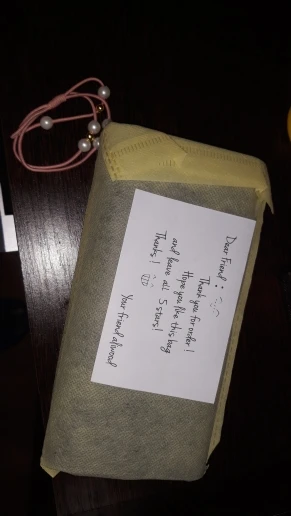 Dear Friend :
Thank you for order !
Hope you like this bag
and leave all 5 stars!
Thanks !
Your friend